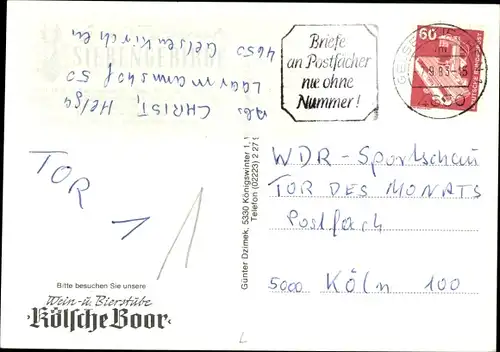 Abs CHRIST, Helga
Laarmannshof 50
4650 Gelsenkirchen
SIEBENGEBIRGE
Briefe
an Postfächer
nie ohne
Nummer!
60
4650
TOR 1
1
WDR - Sportschau
TOR DES MONATS
Postfach
5000 Köln 100
Günter Dzimek, 5330 Königswinter 1,
Telefon (02223) 2 27 1
Bitte besuchen Sie unsere
Wein- u. Bierstube
›Kölsche Boor‹